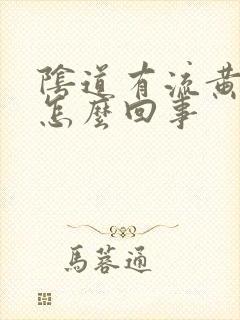 陰道有流黃
怎麼回事
馬蓉通